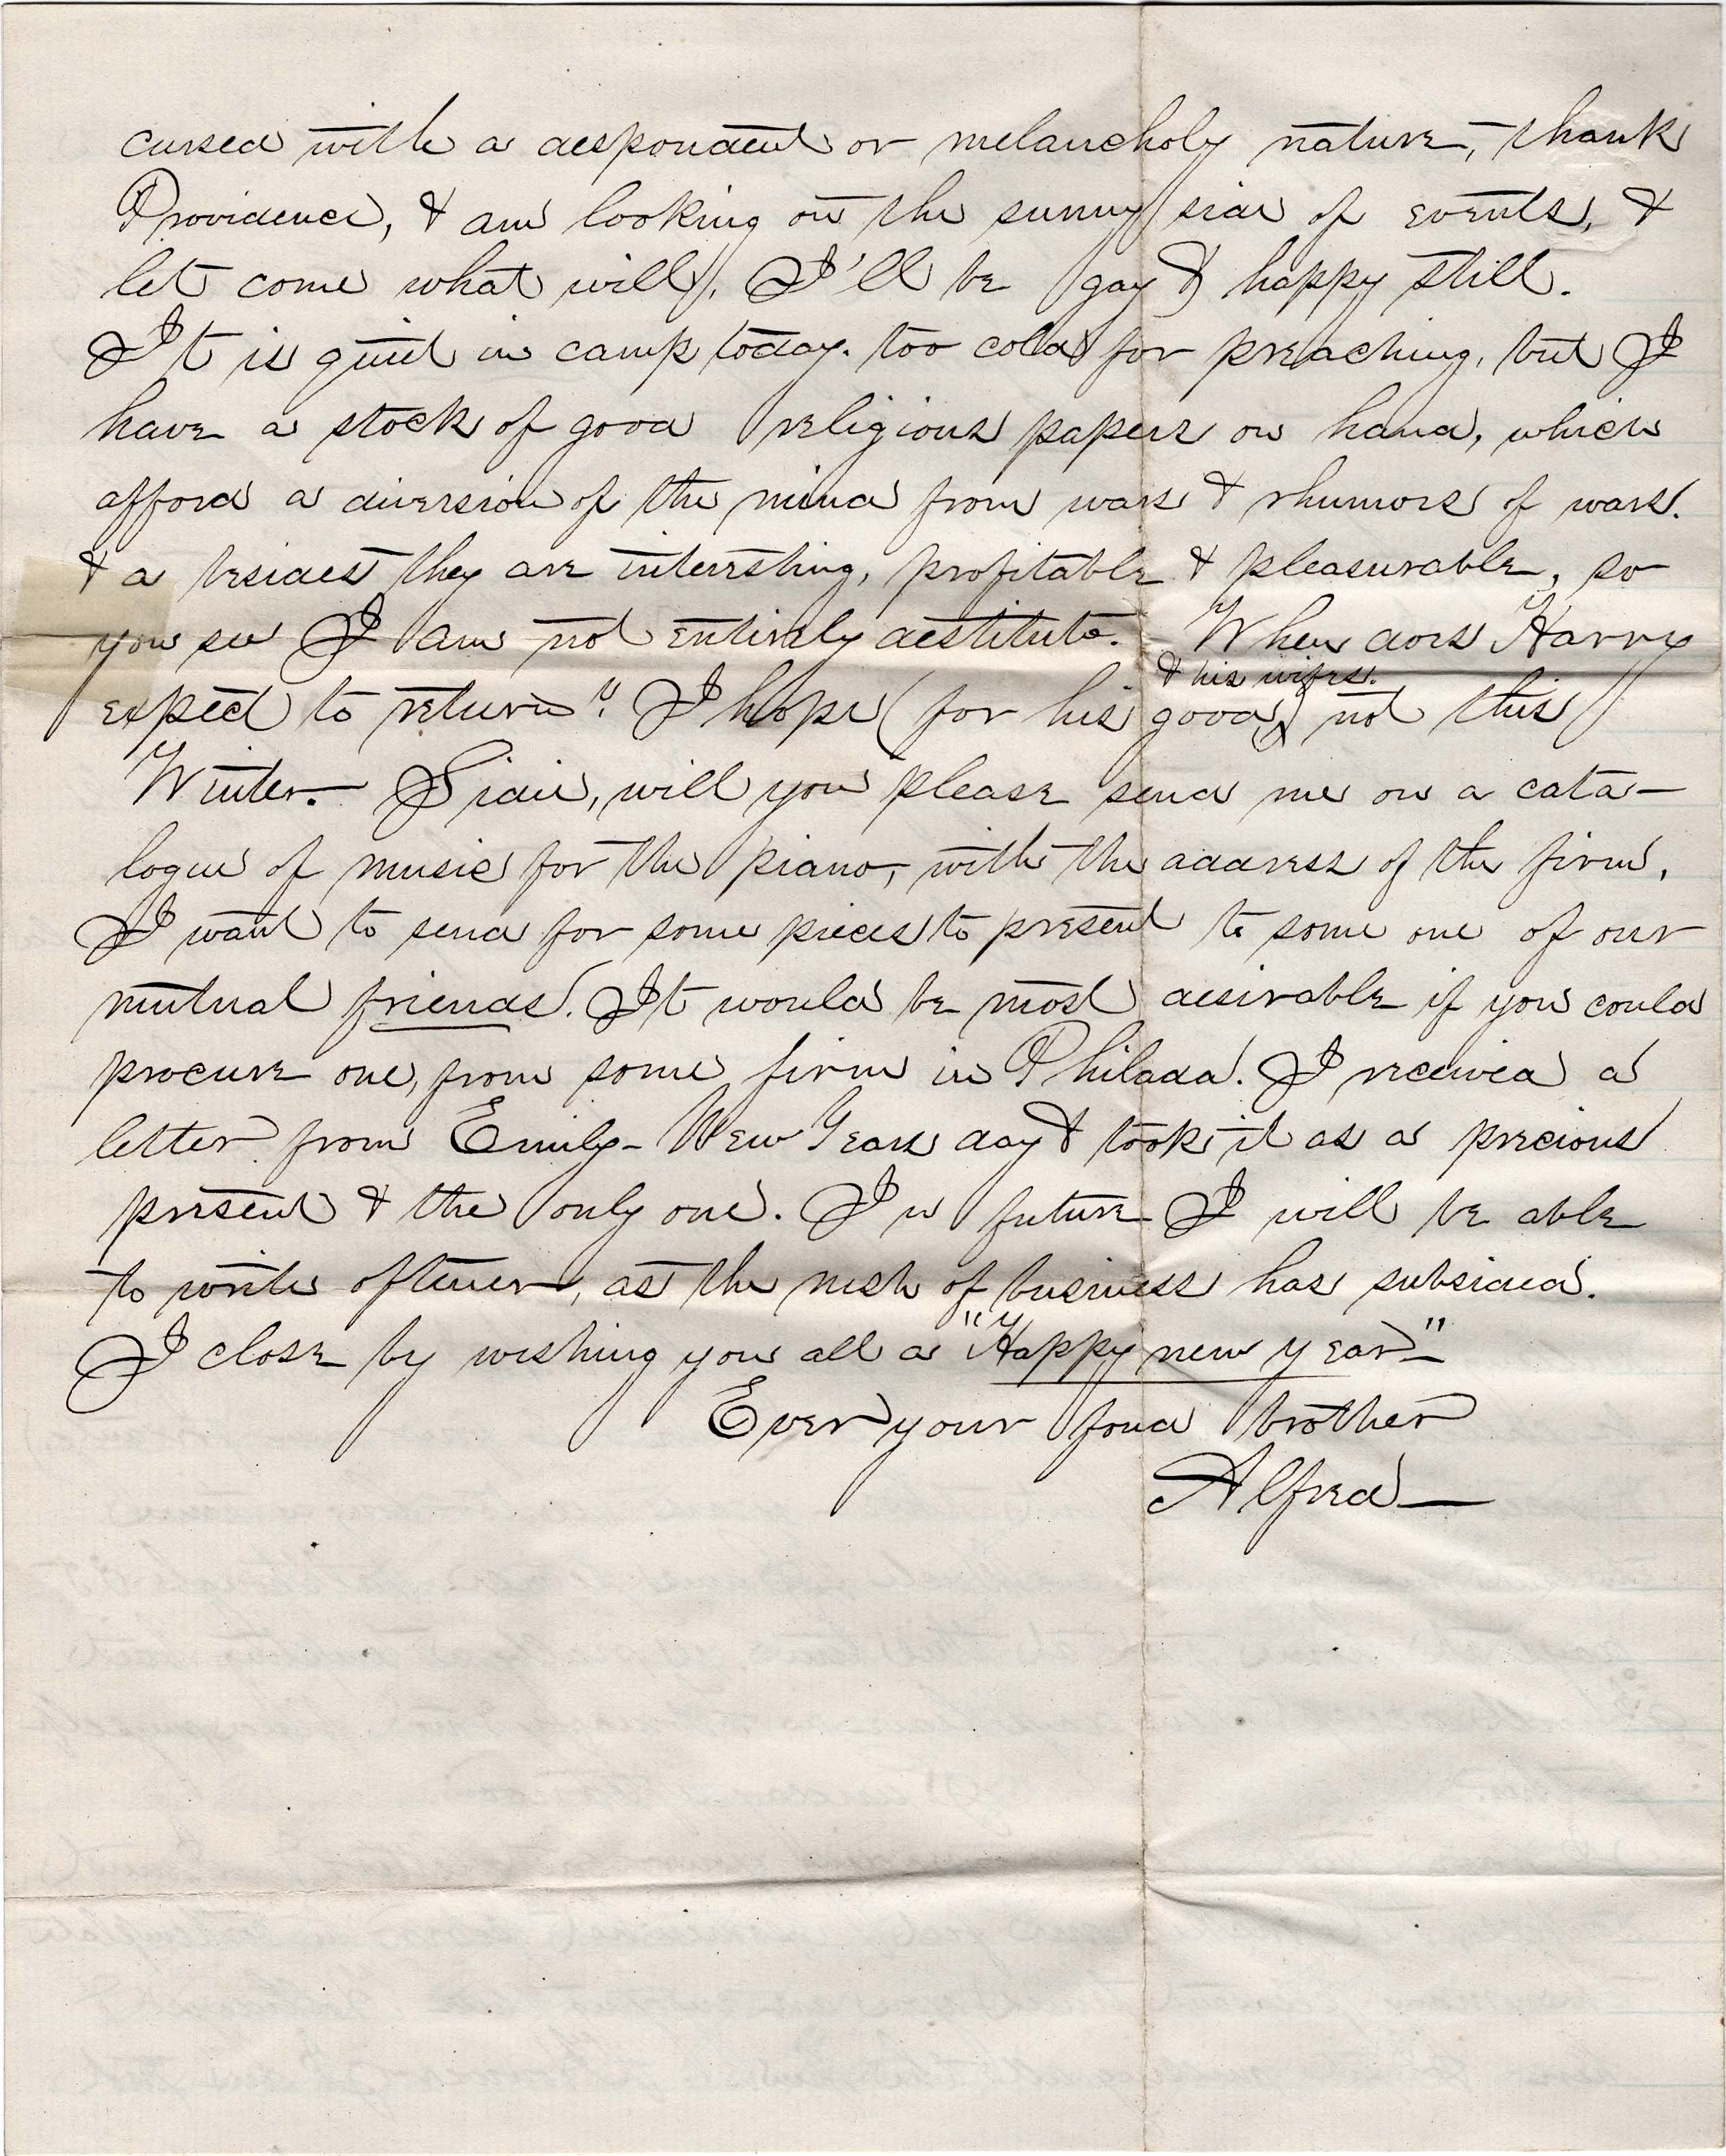 cursed with a despondent or melancholy nature, thank
Providence, & am looking on the sunny side of events, &
let come what will, I'll be gay & happy still.
It is quiet in camp today. too cold for preaching, but I
have a stock of good religious papers on hand, which
afford a diversion of the mind from wars & rhumors of wars.
& a besides they are interesting, profitable & pleasurable, so
you see I am not entirely destitute. When does Harry
& his wifes.
expect to return? I hope (for his good) not this
Winter. Sidie, will you please send me on a cata-
logue of music for the piano, with the address of the firm,
I want to send for some pieces to present to some one of our
mutual friends. It would be most desirable if you could
procure one, from some firm in Philada. I received a
letter from Emily - New Years day & took it as a precious
present & the only one. In future I will be able
to write oftener, as the rush of business has subsided.
I close by wishing you all a "Happy new year"
Ever your fond brother
Alfred